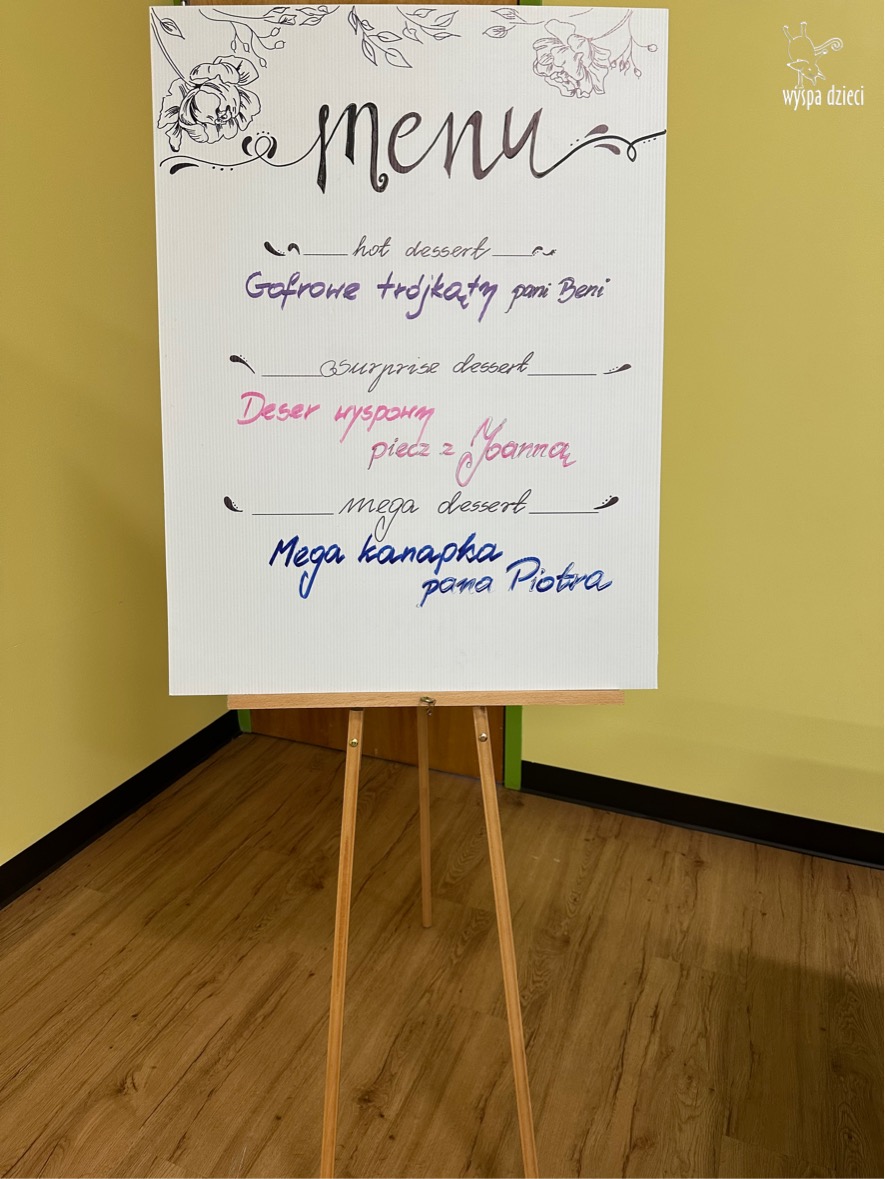 wyspa dzieci
menu
hot dessert
Gofrowe trójkąty pani Beni
surprise dessert
Deser wyspowy
piecz z Yoanną
mega dessert
Mega kanapka
pana Piotra